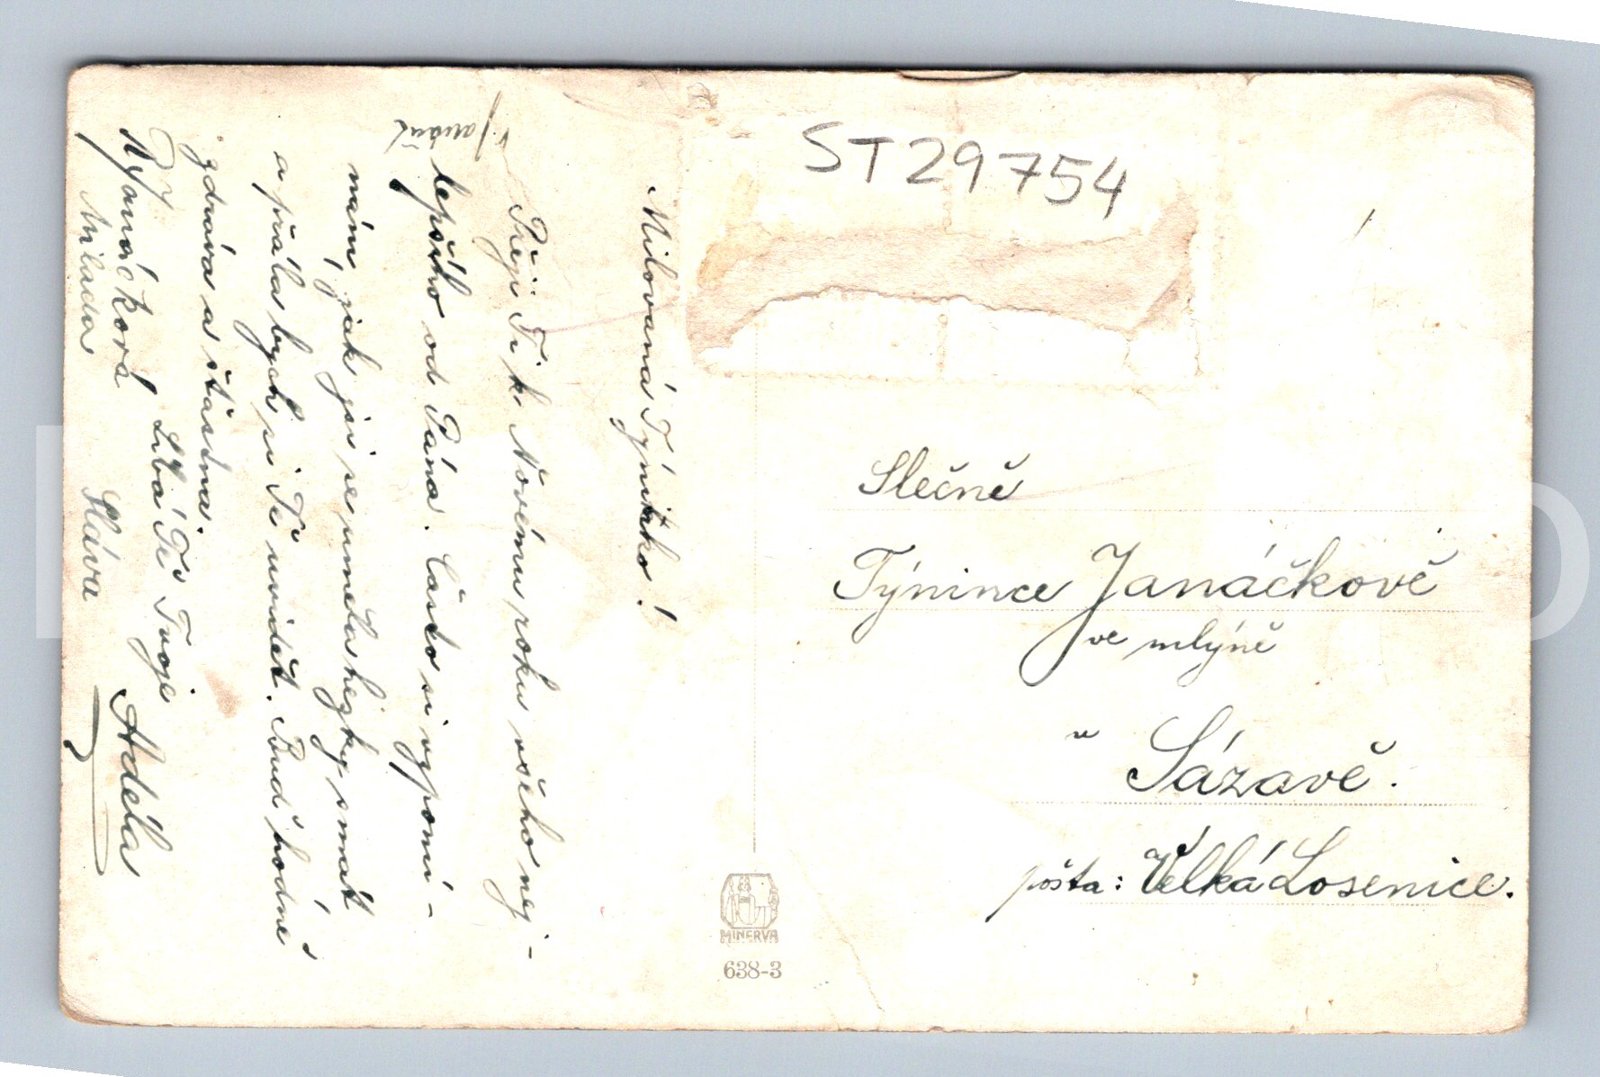 ST29754
Milovaná Týninko!
Přeji Ti k Novému roku všeho nej-
lepšího od Pána. Často si vzpomí-
nám, jak jsi se uměla hezky smát
a přála bych si Tě uvidět. Buď hodně
zdráva a šťastna.
Líbá Tě Tvoje Adéla
Milada Sláva
Slečně
Týnince Janáčkově
ve mlýně
v Sázavě.
pošta: Velká Losenice.
MINERVA
638-3